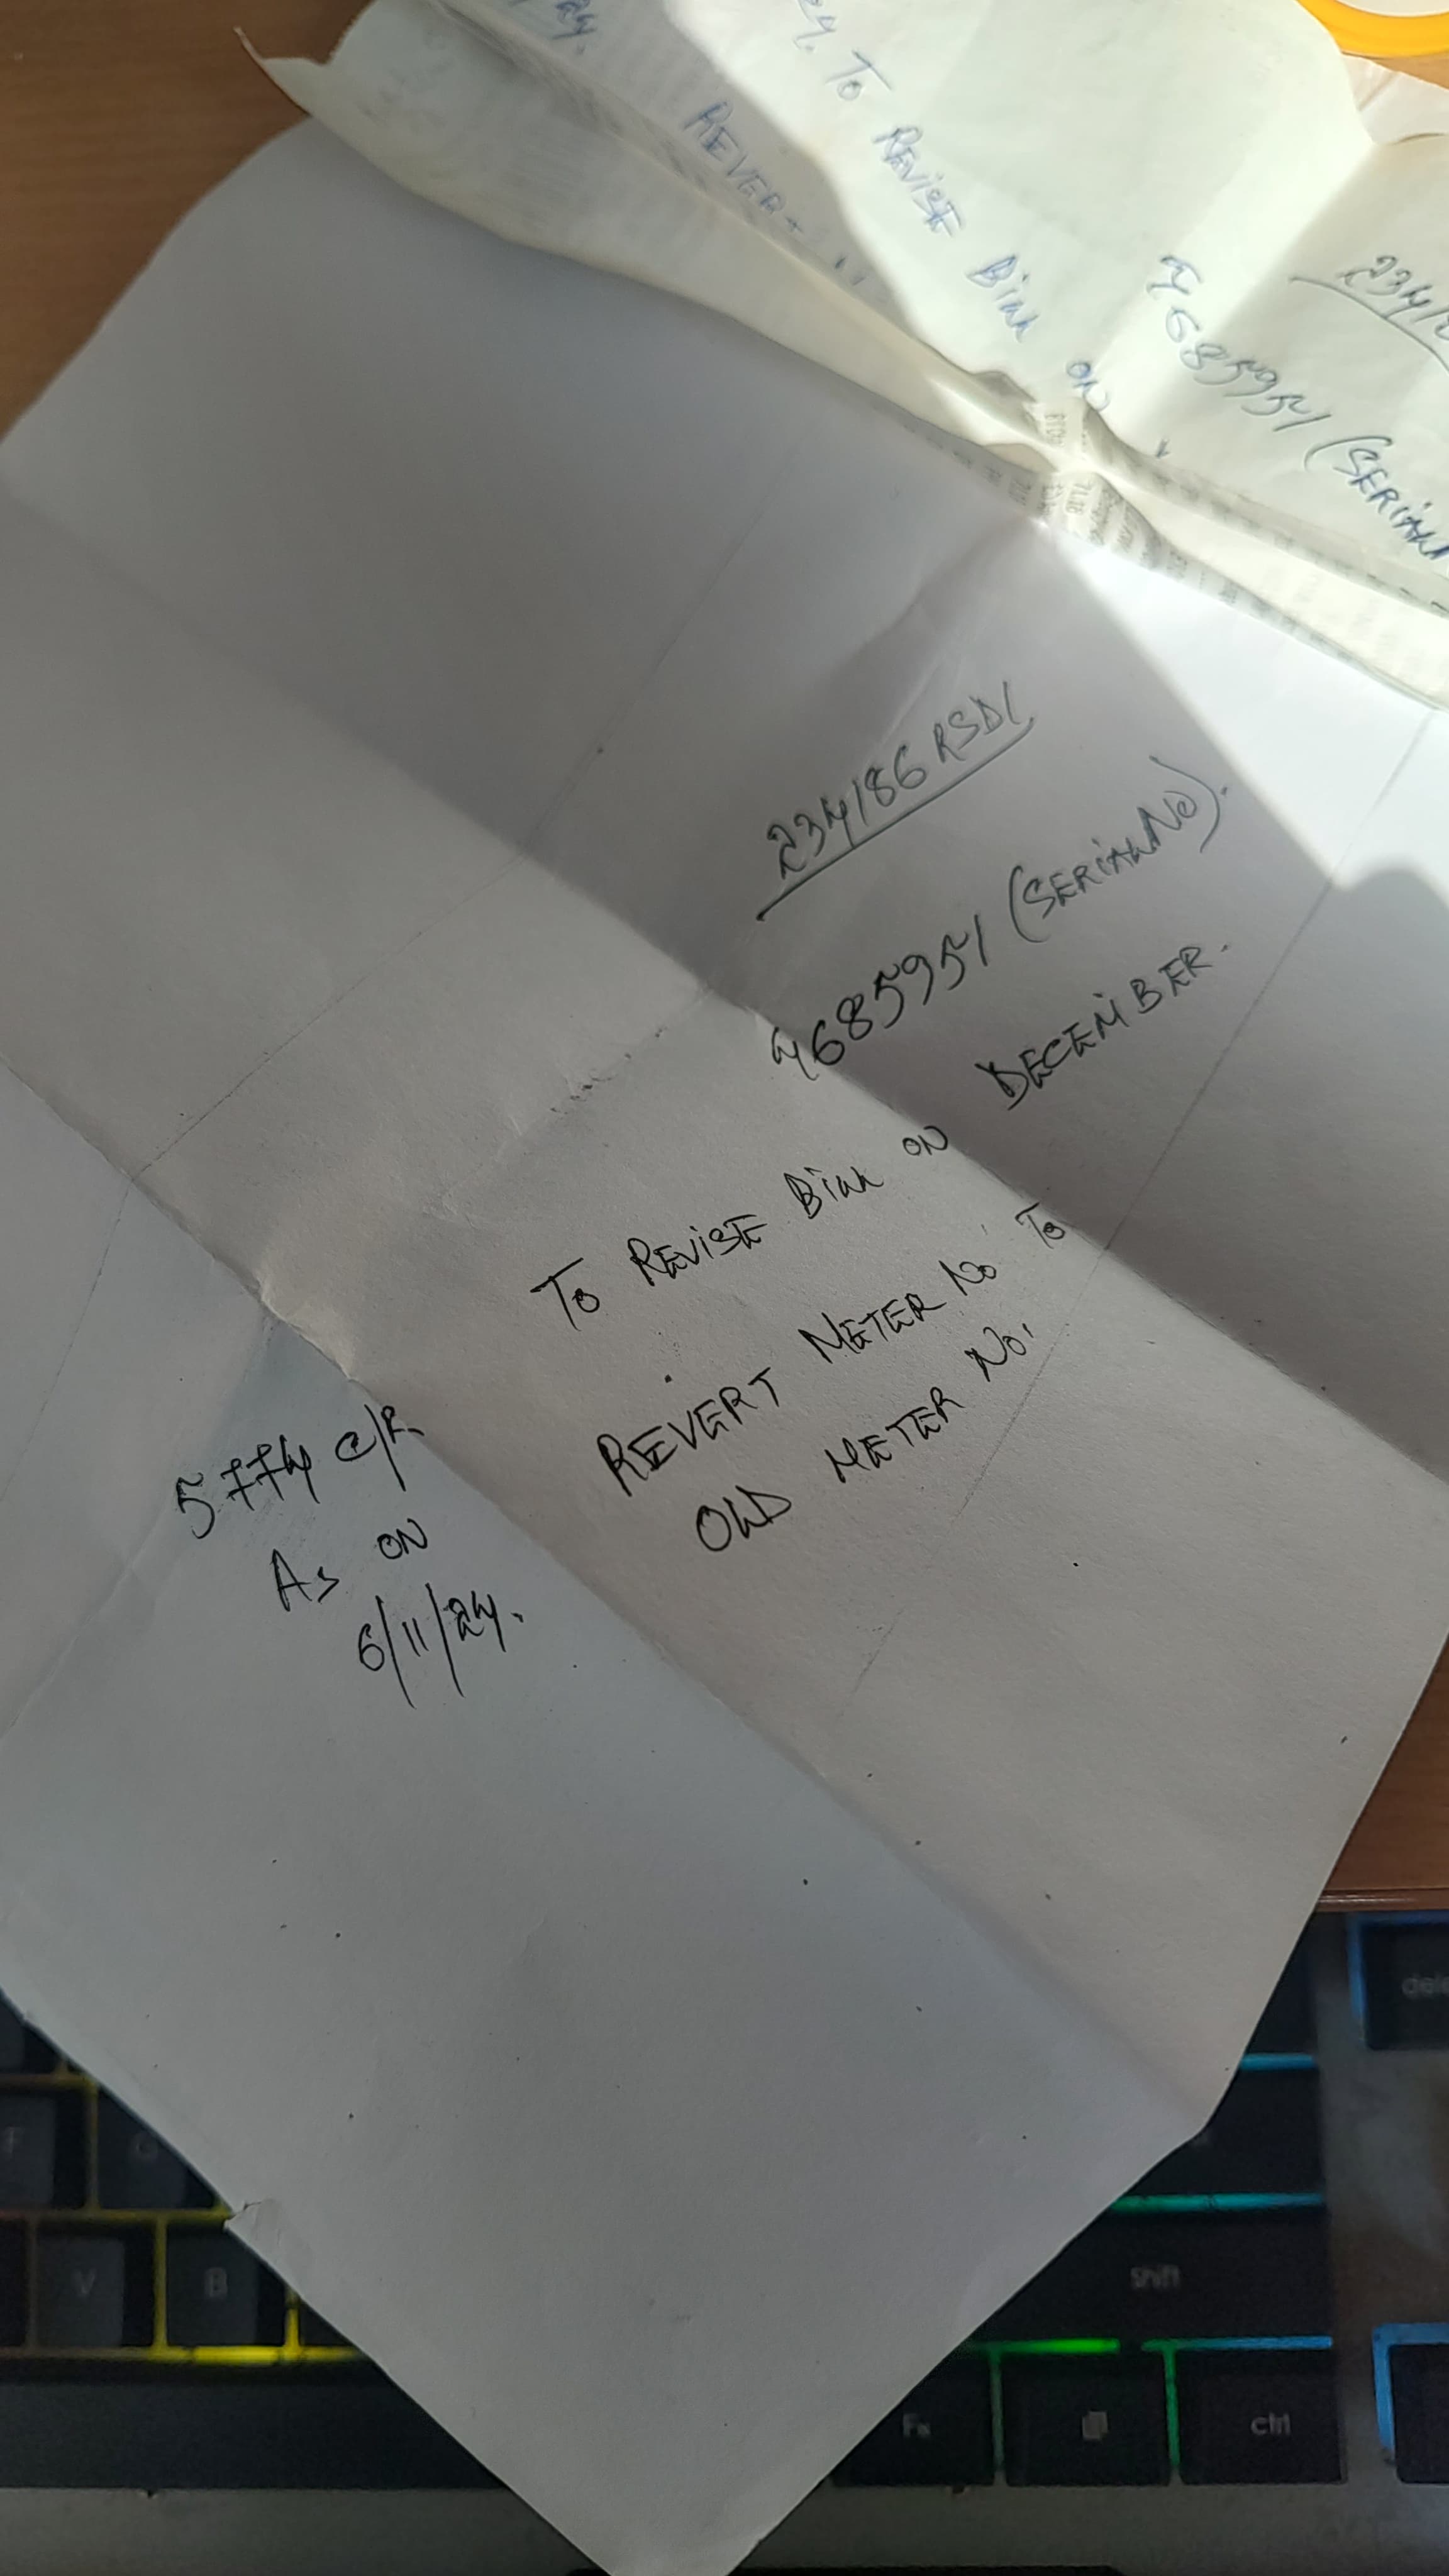 24.
24. To REVISE Bill ON
REVERT
2341
7685951 (SERIAL
234186 RSD1
7685951 (SERIAL NO).
To REVISE Bill ON DECEMBER.
REVERT METER No To
OLD METER No.
5774 C/R
As ON
6/11/24.
F
V
B
Shift
Fn
ctrl